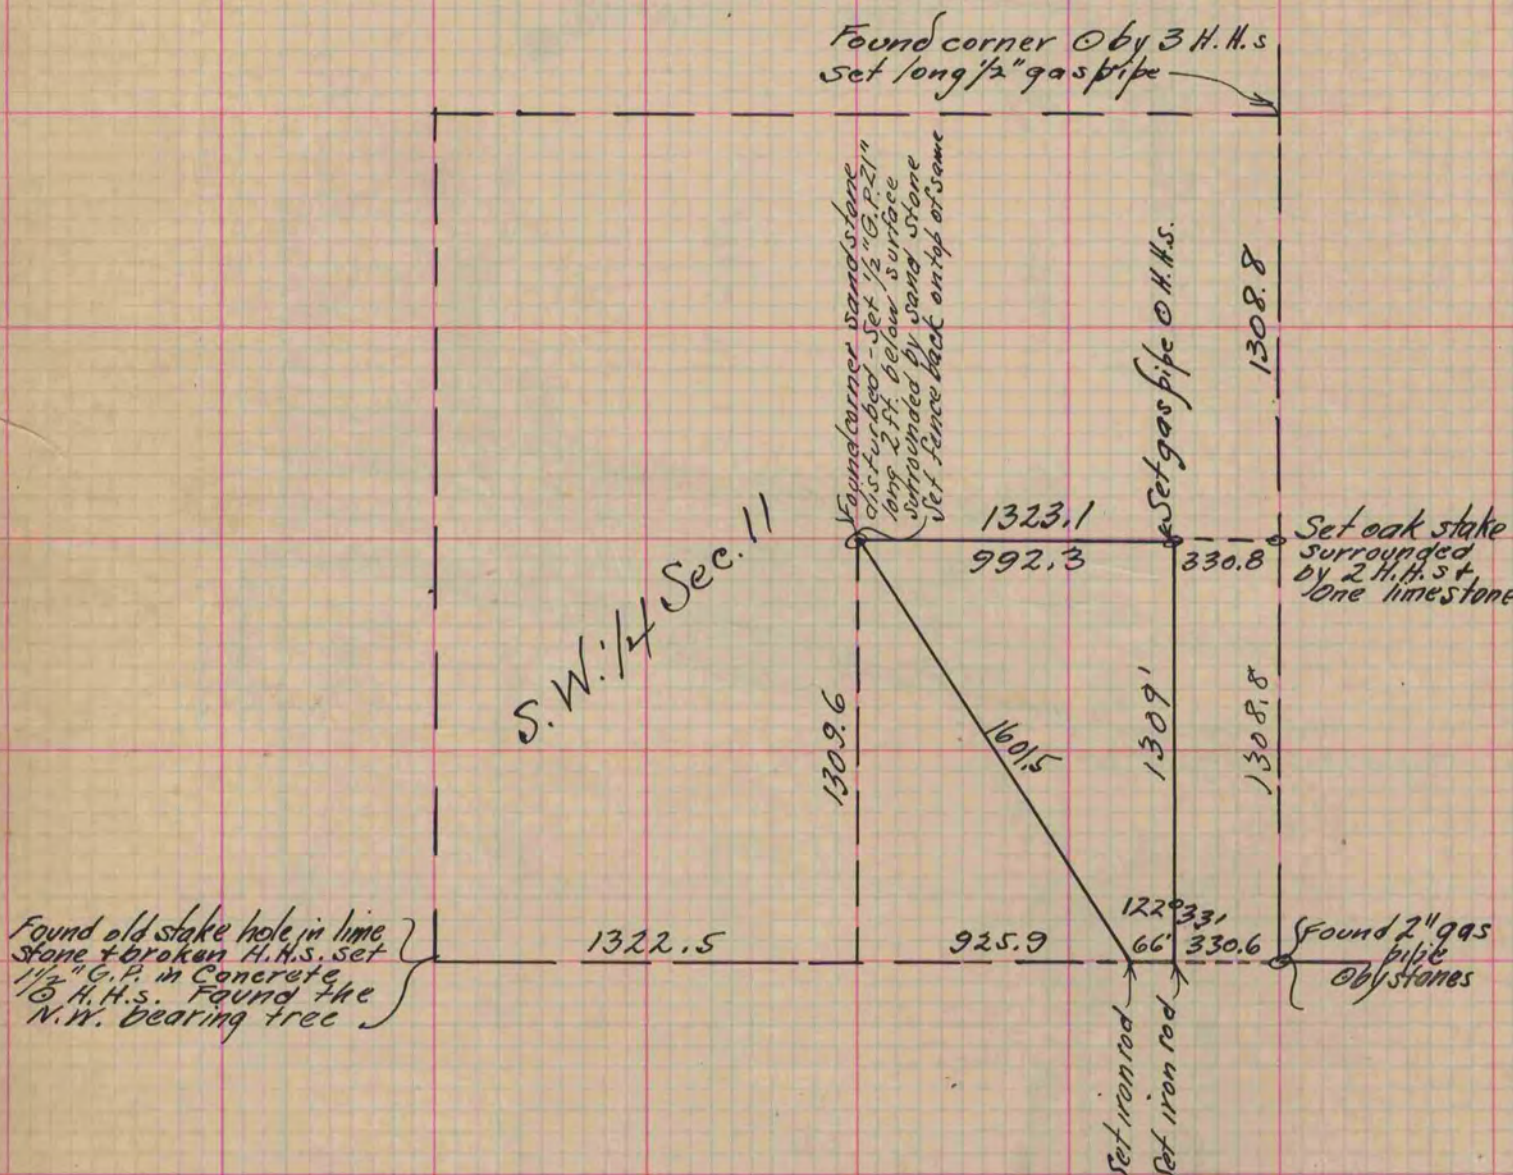 Found corner ⊙ by 3 H.H.s
set long 1/2" gas pipe
Found corner sandstone
disturbed - Set 1/2" G.P. 21"
long 2 ft. below surface
surrounded by sand stone
Set fence back on top of same
Set gas pipe ⊙ H.H.s.
1308.8
S.W. 1/4 Sec. 11
1323.1
992.3
330.8
Set oak stake
surrounded
by 2 H.H.s +
one limestone
1309.6
1601.5
1309'
1308.8
Found old stake hole in lime
stone + broken H.H.s. set
1 1/2" G.P. in Concrete
⊙ H.H.s. Found the
N.W. bearing tree
1322.5
925.9
122°33'
66'
330.6
Found 2" gas
pipe
⊙ by stones
Set iron rod
Set iron rod